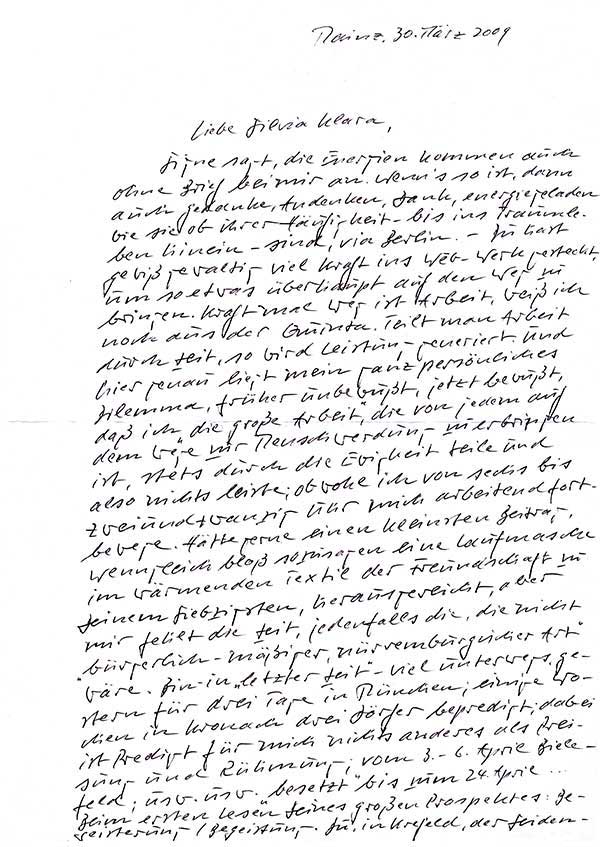 Mainz, 30. März 2009
Liebe Silvia Klara,
Signe sagt, die Energien kommen auch
ohne Brief bei mir an. Wenn's so ist, dann
auch Gedanke, Andenken, Dank, energiegeladen
wie sie ob ihrer Häufigkeit – bis ins Traumle-
ben hinein – sind, via Berlin. – Du hast
gewiß gewaltig viel Kraft ins Web-Werk gesteckt,
um so etwas überhaupt auf den Weg zu
bringen. Kraft mal Weg ist Arbeit, weiß ich
noch aus der Quinta. Teilt man Arbeit
durch Zeit, so wird Leistung generiert. Und
hier genau liegt mein ganz persönliches
Dilemma, früher unbewußt, jetzt bewußt,
daß ich die große Arbeit, die von jedem auf
dem Wege zur Menschwerdung zu erbringen
ist, stets durch die Ewigkeit teile und
also nichts leiste; obwohl ich von sechs bis
zweiundzwanzig Uhr mich arbeitend fort-
bewege. Hätte gerne einen kleinsten Beitrag,
wenngleich bloß sozusagen eine Laufmasche
im wärmenden Textil der Freundschaft zu
seinem Siebzigsten, herausgereicht, aber
mir fehlt die Zeit, jedenfalls die, die nicht
"bürgerlich-mäßiger, nürrenburgischer Art"
wäre. Bin in "letzter Zeit" viel unterwegs, ge-
stern für drei Tage in München; einige Wo-
chen in Kronach drei Dörfer bepredigt; dabei
ist Predigt für mich nichts anderes als Prei-
sung und Rühmung; vom 3.-6. April Biele-
feld; usw. usw. "besetzt" bis zum 24. April ...
Beim ersten Lesen Deines großen Prospektes: Be-
geisterung / Begeistung. Du, in Krefeld, der Seiden-